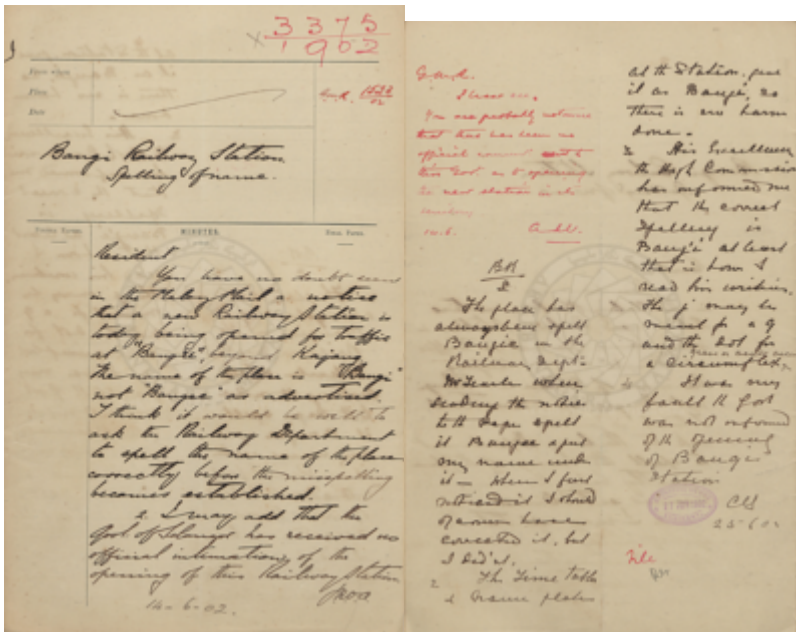 3375
1902
G.M.R. 1528/02
Bangi Railway Station.
Spelling of name.
MINUTES.
Resident
You have no doubt seen
in the Malay Mail a notice
that a new Railway Station is
today being opened for traffic
at "Bangie", beyond Kajang.
The name of the place is "Bangi"
not "Bangie" as advertised.
I think it would be well to
ask the Railway Department
to spell the name of the place
correctly before the misspelling
becomes established.
2. I may add that the
Govt of Selangor has received no
official intimation of the
opening of this Railway Station
14-6-02.
G.M.R.
You are probably
that there has been no
official
this Govt as to opening
new station in its
territory
The place has
always been spelt
Bangie in the
Railway Dept:
when
sending the notice
to the Papers spelt
it Bangee & put
my name under
it — When I first
noticed it I should
of course have
corrected it, but
I didn't.
2 The Time table
& name plates
at the Station, give
it as Bangi, so
there is no harm
done.
3 His Excellency
the High Commissioner
has informed me
that the correct
spelling is
at least
that is how I
read his writing.
The j may be
meant for a g
and the dot for
a circumflex,
It was my
fault the Govt
was not informed
of the opening
of Bangi
Station
25-6-02
File